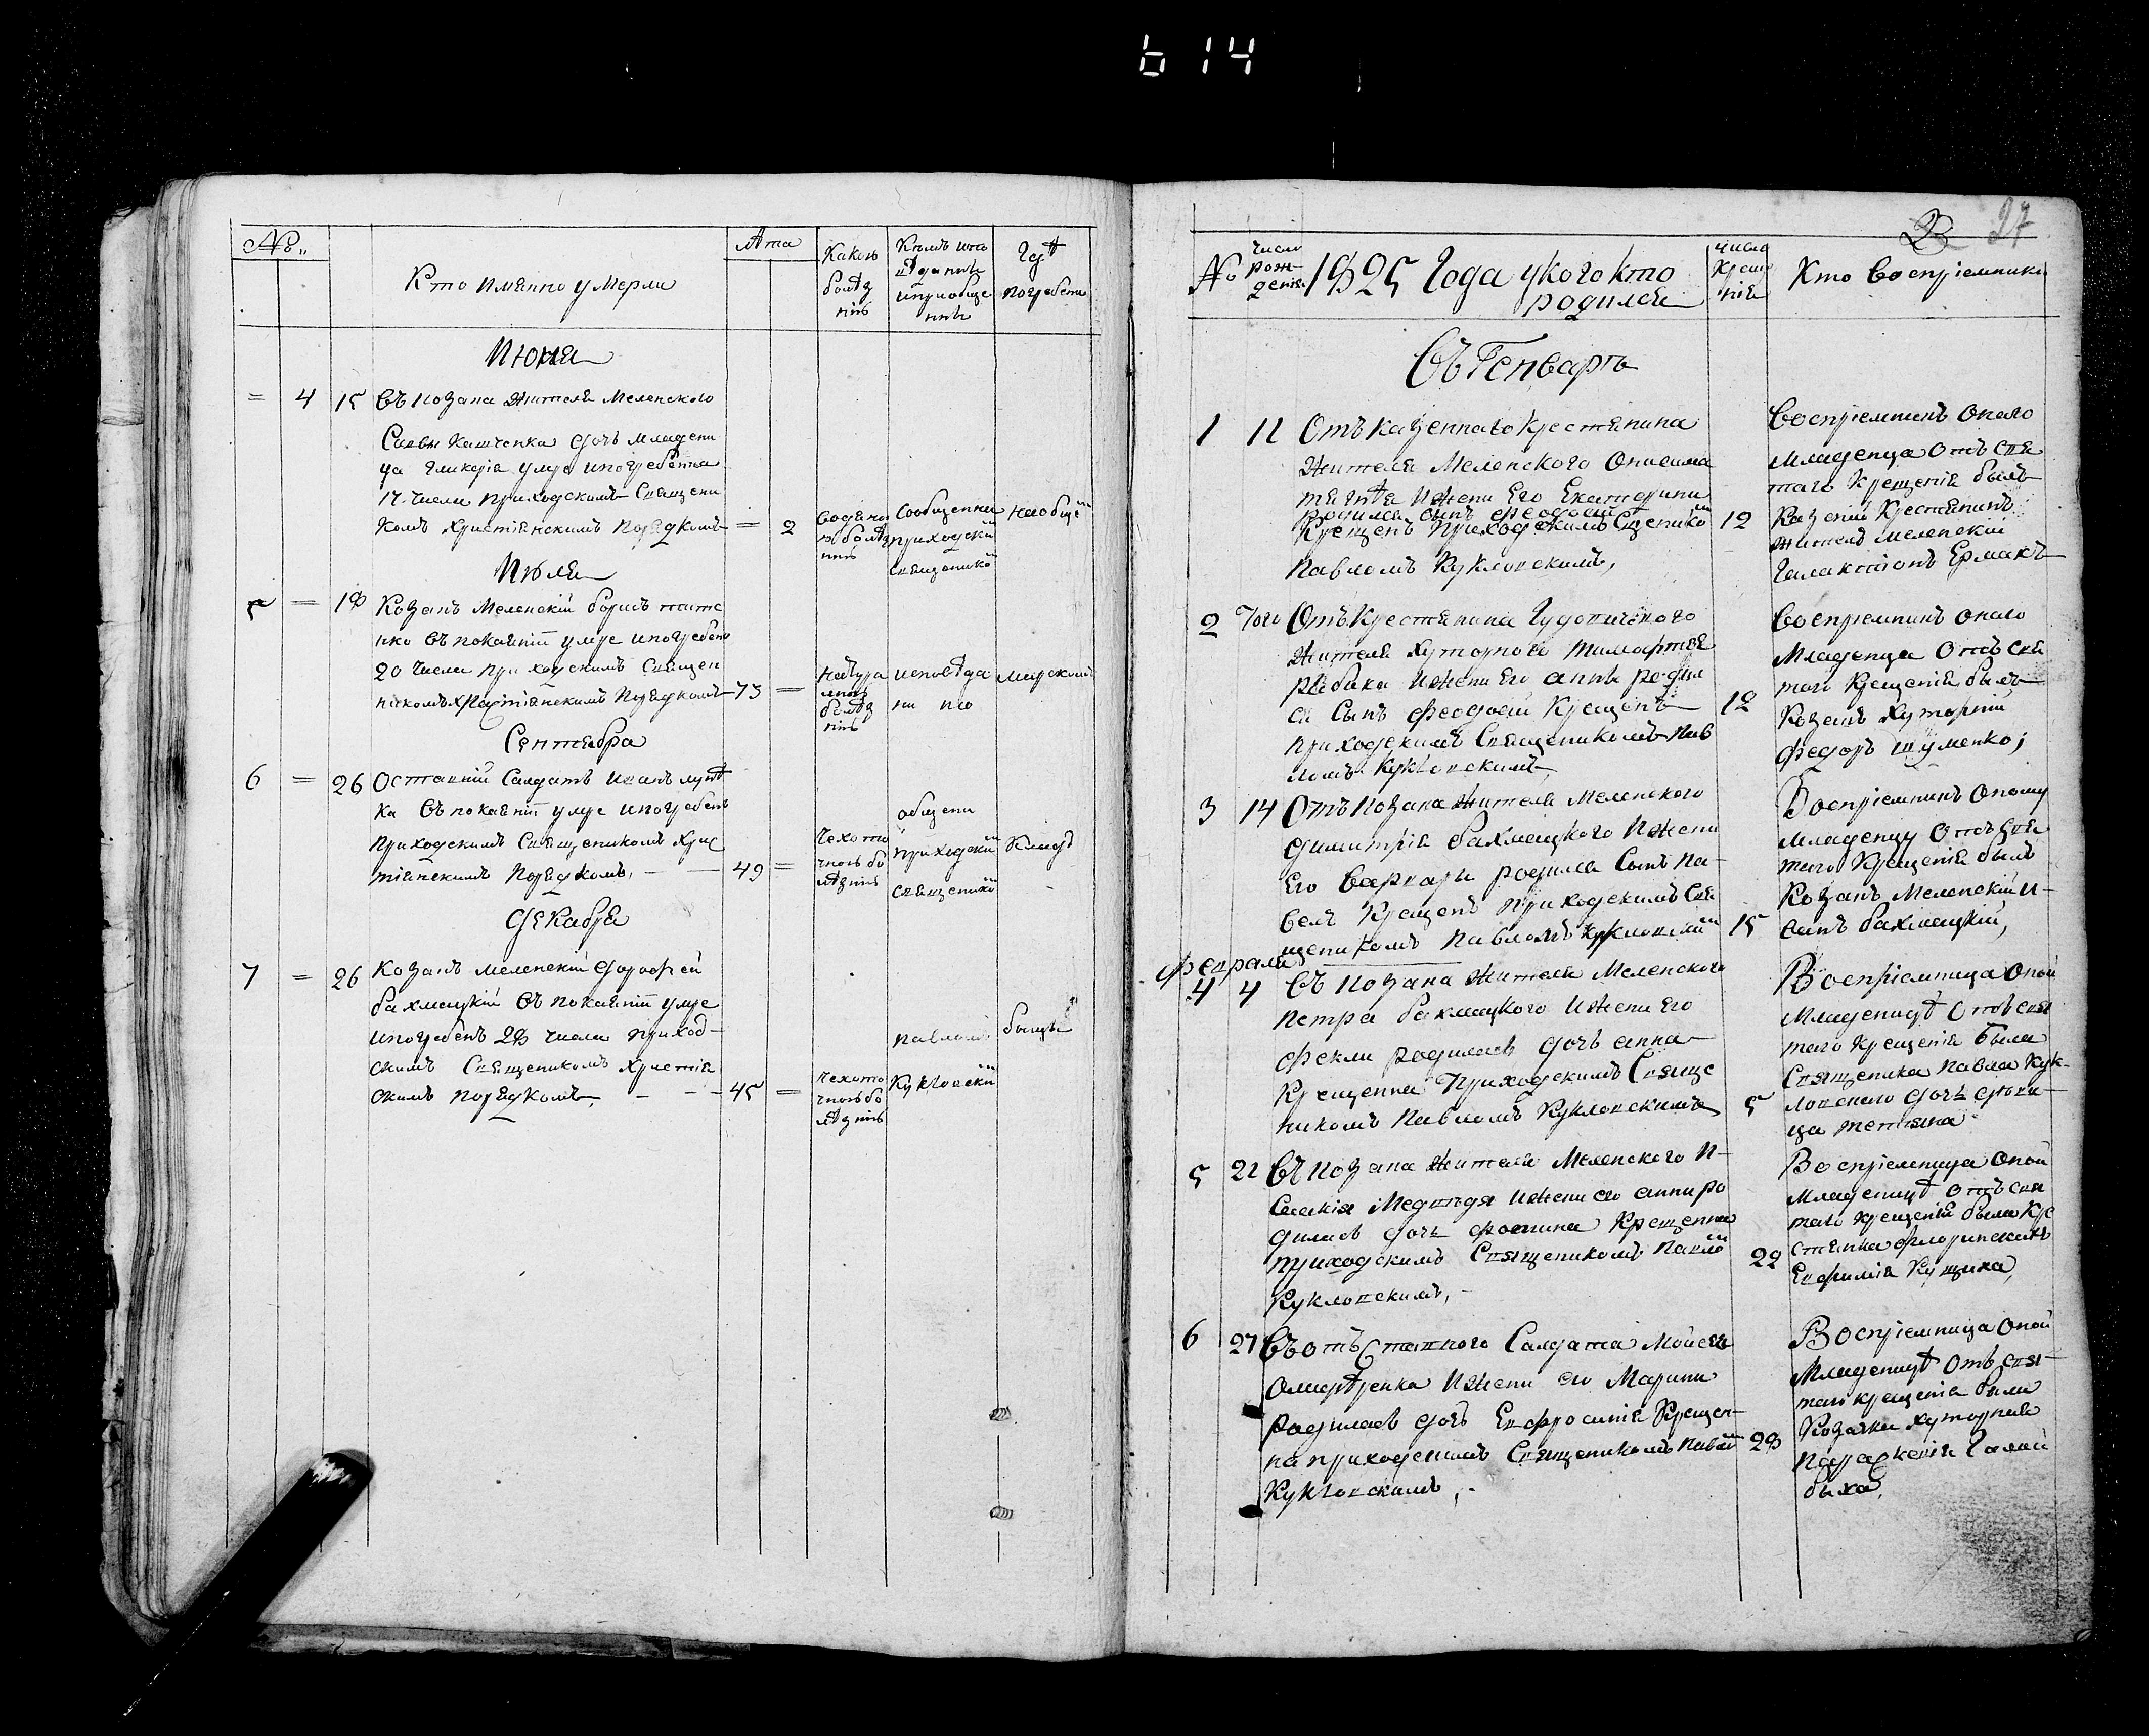 614
№
Кто имянно умерли
Лѣта
Какою болѣзнию
Где погребени
Июня
= 4 15 Съ козака жителя Меленского
Саввы дочь младени
ца Гликерія умре и погребенна
17. числа приходскимъ Священи
комъ Христіянскимъ порядкомъ = 2
Сообщенна приходскій Священико
на общей
Июля
5 = 18 Козакъ Меленскій борисъ
въ покаяніи умре и погребенъ
20 числа приходскимъ Священ
никомъ Христіянскимъ порядкомъ 73 =
натуралною болѣзнию
мирскомъ
Сентября
6 = 26 Оставній Салдатъ Иванъ
ка въ покаяніи умре и погребенъ
приходскимъ Священикомъ Хрис
тіянскимъ порядкомъ, — — 49 =
чехоточною болѣзнию
общени приходскій священико
Декабря
7 = 26 Козакъ меленскій Дорофей
бахмацкій въ покаяніи умре
и погребенъ 28 числа приход-
скимъ Священикомъ Христія
скимъ порядкомъ, - - - 45 =
чехоточною болѣзнию
павломъ Кукловский
27
№
число рождения
1825 Года у кого кто
родился
число крещения
Кто восприемники
Въ Генваръ
1 11 Отъ казеннаго крестянина
жителя Меленского Онисима
и жени Его Екатерини
родился сынъ Феодосій
Крещенъ приходскимъ Сщенико 12
павломъ Кукловскимъ,
Воспріемникъ онаго
младенца отъ свя
таго крещенія былъ
казеній крестянинъ
житель меленскій
Галактіонъ Ермакъ
2 того Отъ крестянина
жителя Хуторного
рябака и жени Его анни родил
ся сынъ феодосій крещенъ 12
приходскимъ Священикомъ пав
ломъ Кукловскимъ,
Воспріемникъ онаго
младенца отъ свя
таго крещенія былъ
козакъ Хуторній
федоръ шуменко;
3 14 Отъ козака жителя Меленского
димитрія бахмацкого и жени
Его варвари родился сынъ па-
велъ крещенъ приходскимъ свя
щеникомъ павломъ кукловскій 15
Воспріемникъ оному
младенцу отъ свя
таго крещенія былъ
козакъ Меленскій и-
ванъ бахмацкій,
Февраля
4 4 Съ козака жителя Меленского
петра бахмацкого и жени Его
фекли родилась дочь анна
крещенна приходскимъ Свяще
никомъ павломъ Кукловскимъ 5
Воспріемница оной
младеницѣ отъ свя
таго крещенія была
Священика павла кук-
ловского дочь дѣви-
ца тетяна
5 21 Съ козака жителя Меленского И-
саакія Медведя и жени его анни ро
дилась дочь фотина крещенна
приходскимъ Священикомъ павло 22
Кукловскимъ, -
Воспріемница оной
младеницѣ отъ свя
таго крещенія была кре
стянка флоринскаго
Евфимія Кущиха,
6 27 Съ отъставного Салдата Мойсея
и жени его Марини
родилась дочь Евфросинія крещен-
на приходскимъ Священикомъ павло 28
Кукловскимъ, -
Воспріемница оной
младеницѣ отъ свя-
таго крещенія была
козачка хуторная
параскевія